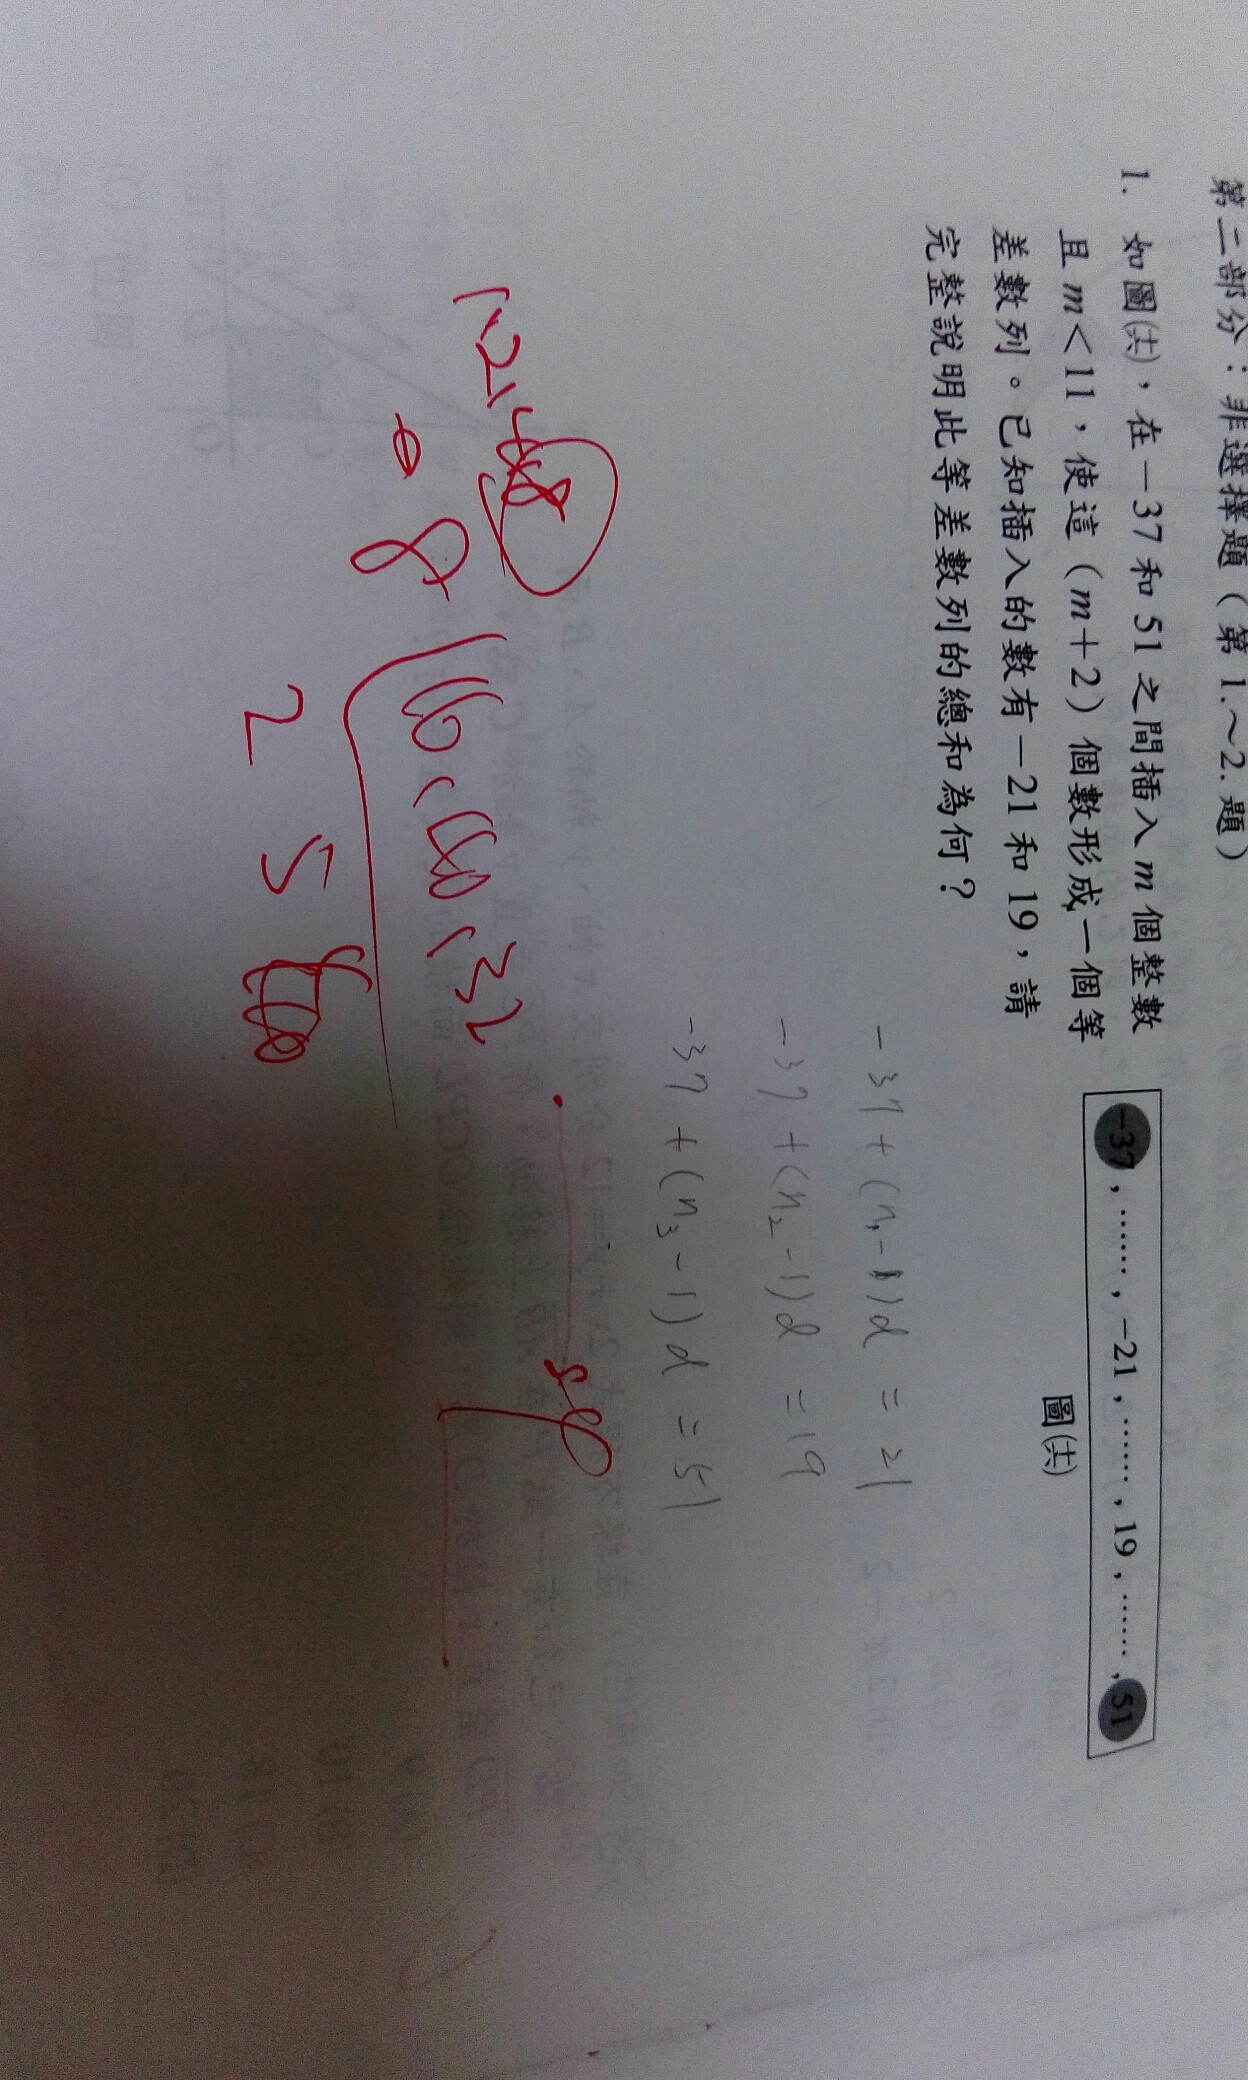 第二部分：非選擇題（第1.～2.題）
1. 如圖(共)，在－37和51之間插入m個整數
且m＜11，使這（m＋2）個數形成一個等
差數列。已知插入的數有－21和19，請
完整說明此等差數列的總和為何？
-37，……，-21，……，19，……，51
-37+(n₁-1)d = 21
-37+(n₂-1)d = 19
-37+(n₃-1)d = 51
8
16, 40, 32
2 5